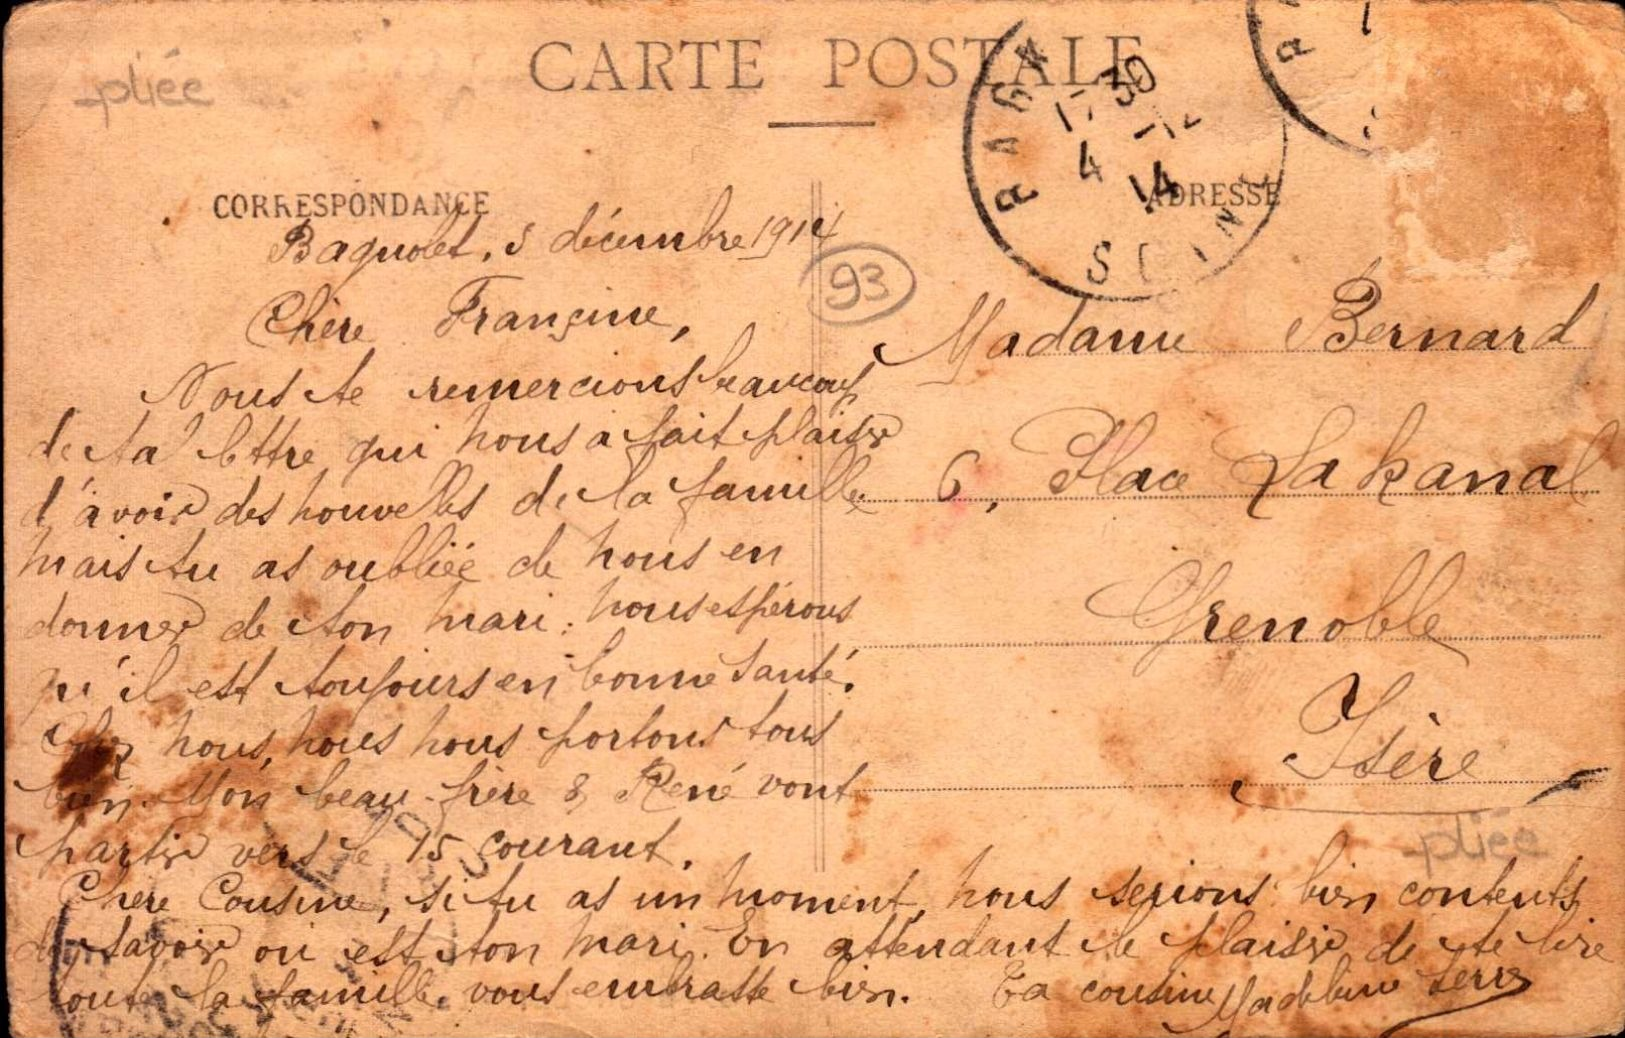 pliée
CARTE POSTALE
BAGN
17 30
4 -12
14
SEINE
CORRESPONDANCE
ADRESSE
Bagnolet, 5 décembre 1914
93
Chère Françine,
Nous te remercions beaucoup
de ta lettre qui nous a fait plaisir
d'avoir des nouvelles de la famille
mais tu as oubliée de nous en
donner de ton mari : nous espérons
qu'il est toujours en bonne santé.
Chez nous, nous nous portons tous
bien. Mon beau-frère & René vont
partir vers le 15 courant.
Chère Cousine, si tu as un moment, nous serions bien contents
de savoir où est ton mari. En attendant le plaisir de te lire
toute la famille vous embrasse bien. Ta cousine Madeleine
Madame Bernard
6, Place Lakanal
Grenoble
Isère
pliée